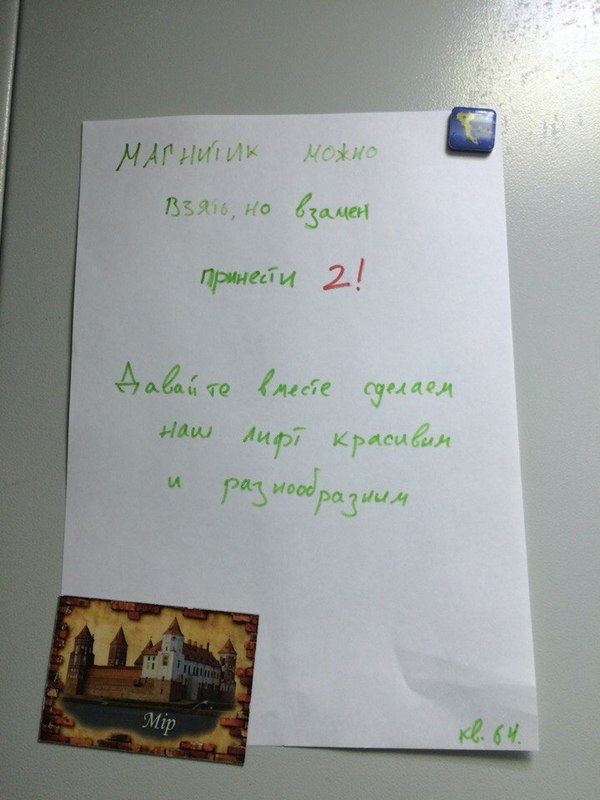 МАГНИТИК МОЖНО
ВЗЯТЬ, но взамен
принести 2!
Давайте вместе сделаем
наш лифт красивым
и разнообразным
Мір
кв. 64.